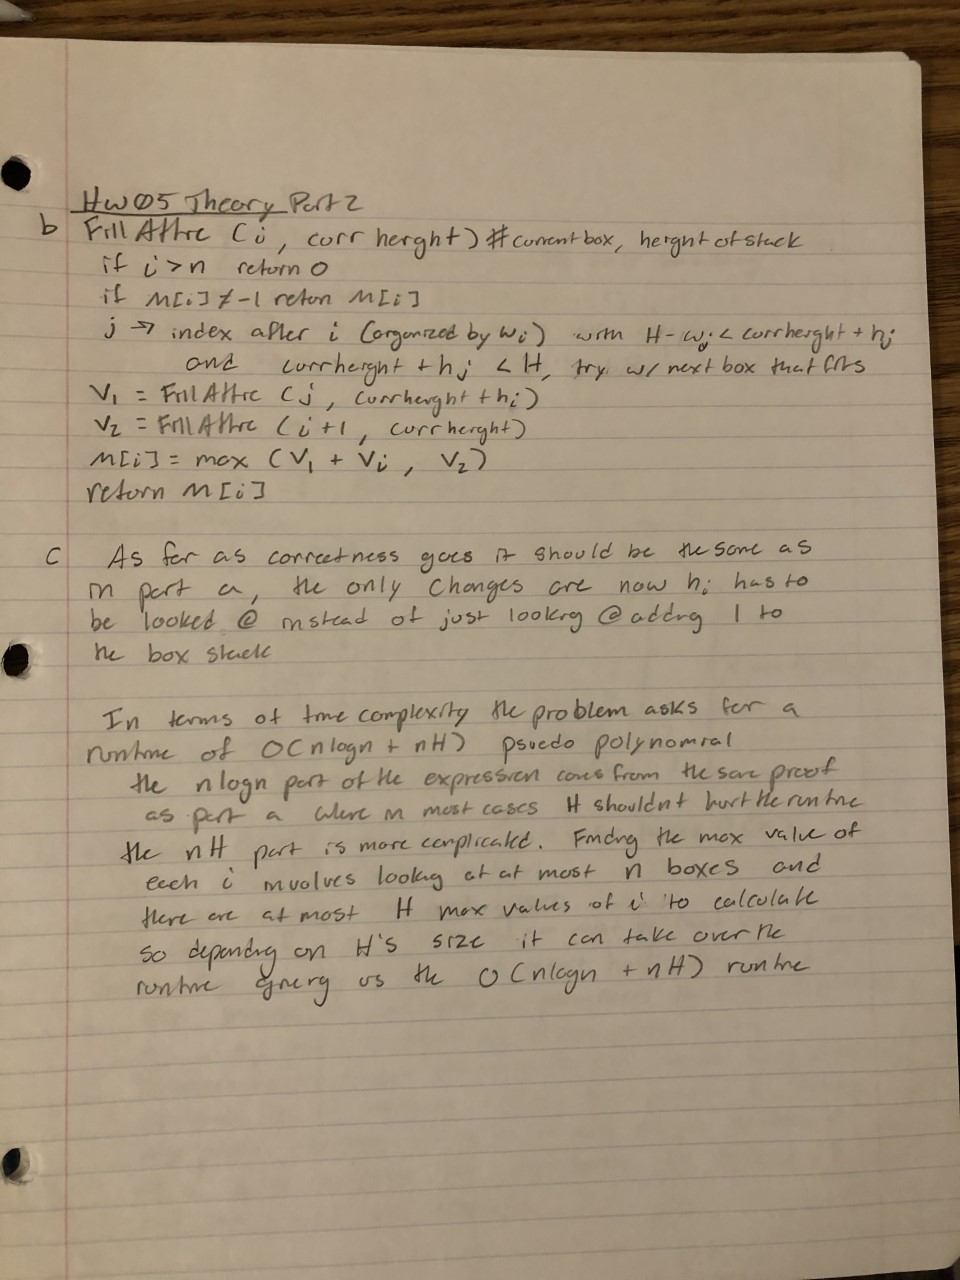 HW 05 Theory Part 2
b Fill Attic (i, curr height) # current box, height of stack
if i > n return 0
if M[i] ≠ -1 return M[i]
j → index after i (organized by wi) with H - wj < currheight + hj
and currheight + hj < H, try w/ next box that fits
V1 = Fill Attic (j, currheight + hi)
V2 = Fill Attic (i+1, currheight)
M[i] = max (V1 + Vi, V2)
return M[i]
c As far as correctness goes it should be the same as
in part a, the only changes are now hi has to
be looked @ instead of just looking @ adding 1 to
the box stack
In terms of time complexity the problem asks for a
runtime of O(nlogn + nH) psuedo polynomial
the nlogn part of the expression comes from the same proof
as part a where in most cases H shouldnt hurt the runtime
the nH part is more complicated. Finding the max value of
each i involves looking at at most n boxes and
there are at most H max values of i to calculate
so depending on H's size it can take over the
runtime giving us the O(nlogn + nH) runtime